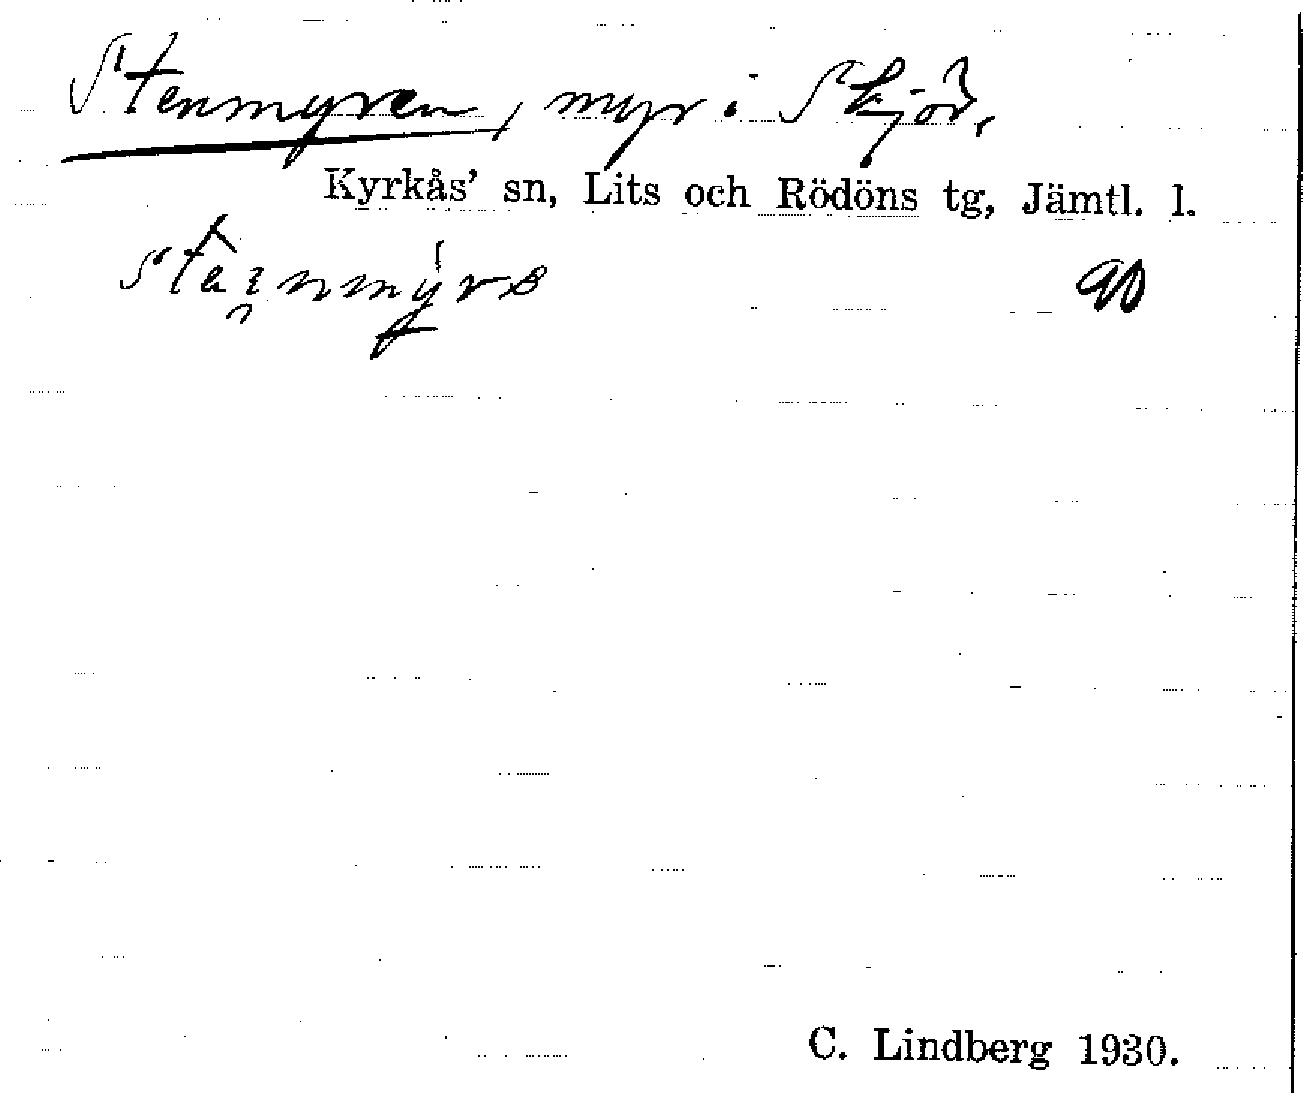 Stenmyren, myr i Skjör,
Kyrkås' sn, Lits och Rödöns tg, Jämtl. l.
90
C. Lindberg 1930.